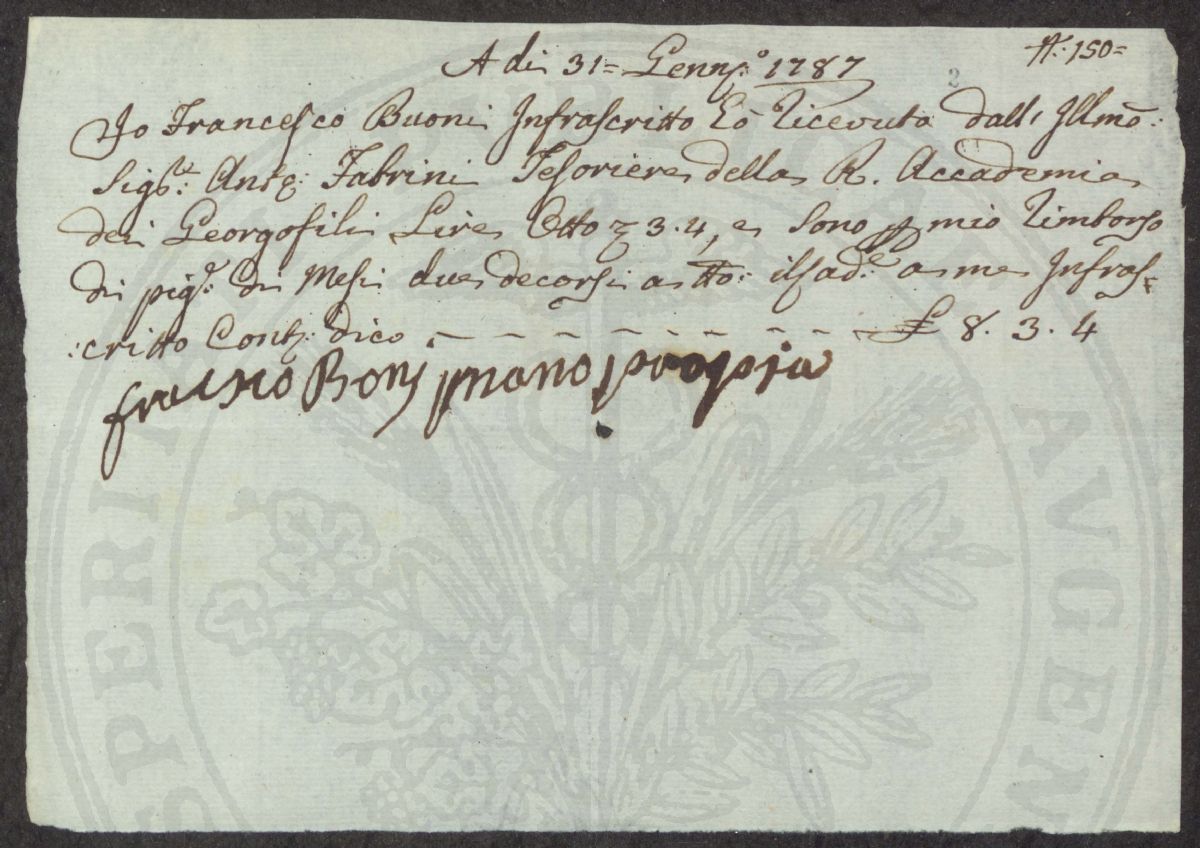 A di 31= Genn.º 1787
N: 150=
2
Io Francesco Buoni Infrascritto Eò Riceuuta dall' Illmõ:
Sigr.e: Antº: Fabrini Tesoriere della R. Accademia
dei Georgofili Lire Otto 3.4, e sono p mio Rimborso
di pigº: di Mesi due decorsi a tto: il sad.e a me Infras=
:critto Cont: dico £ 8. 3. 4
Bonj mano propria
SPERITAT AVGEN